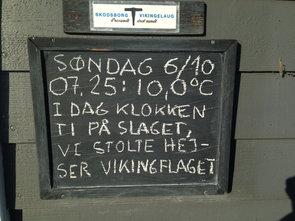 SKODSBORG VIKINGELAUG
SØNDAG 6/10
07,25:10,0°C
I DAG KLOKKEN
TI PÅ SLAGET,
VI STOLTE HEJ-
SER VIKINGFLAGET